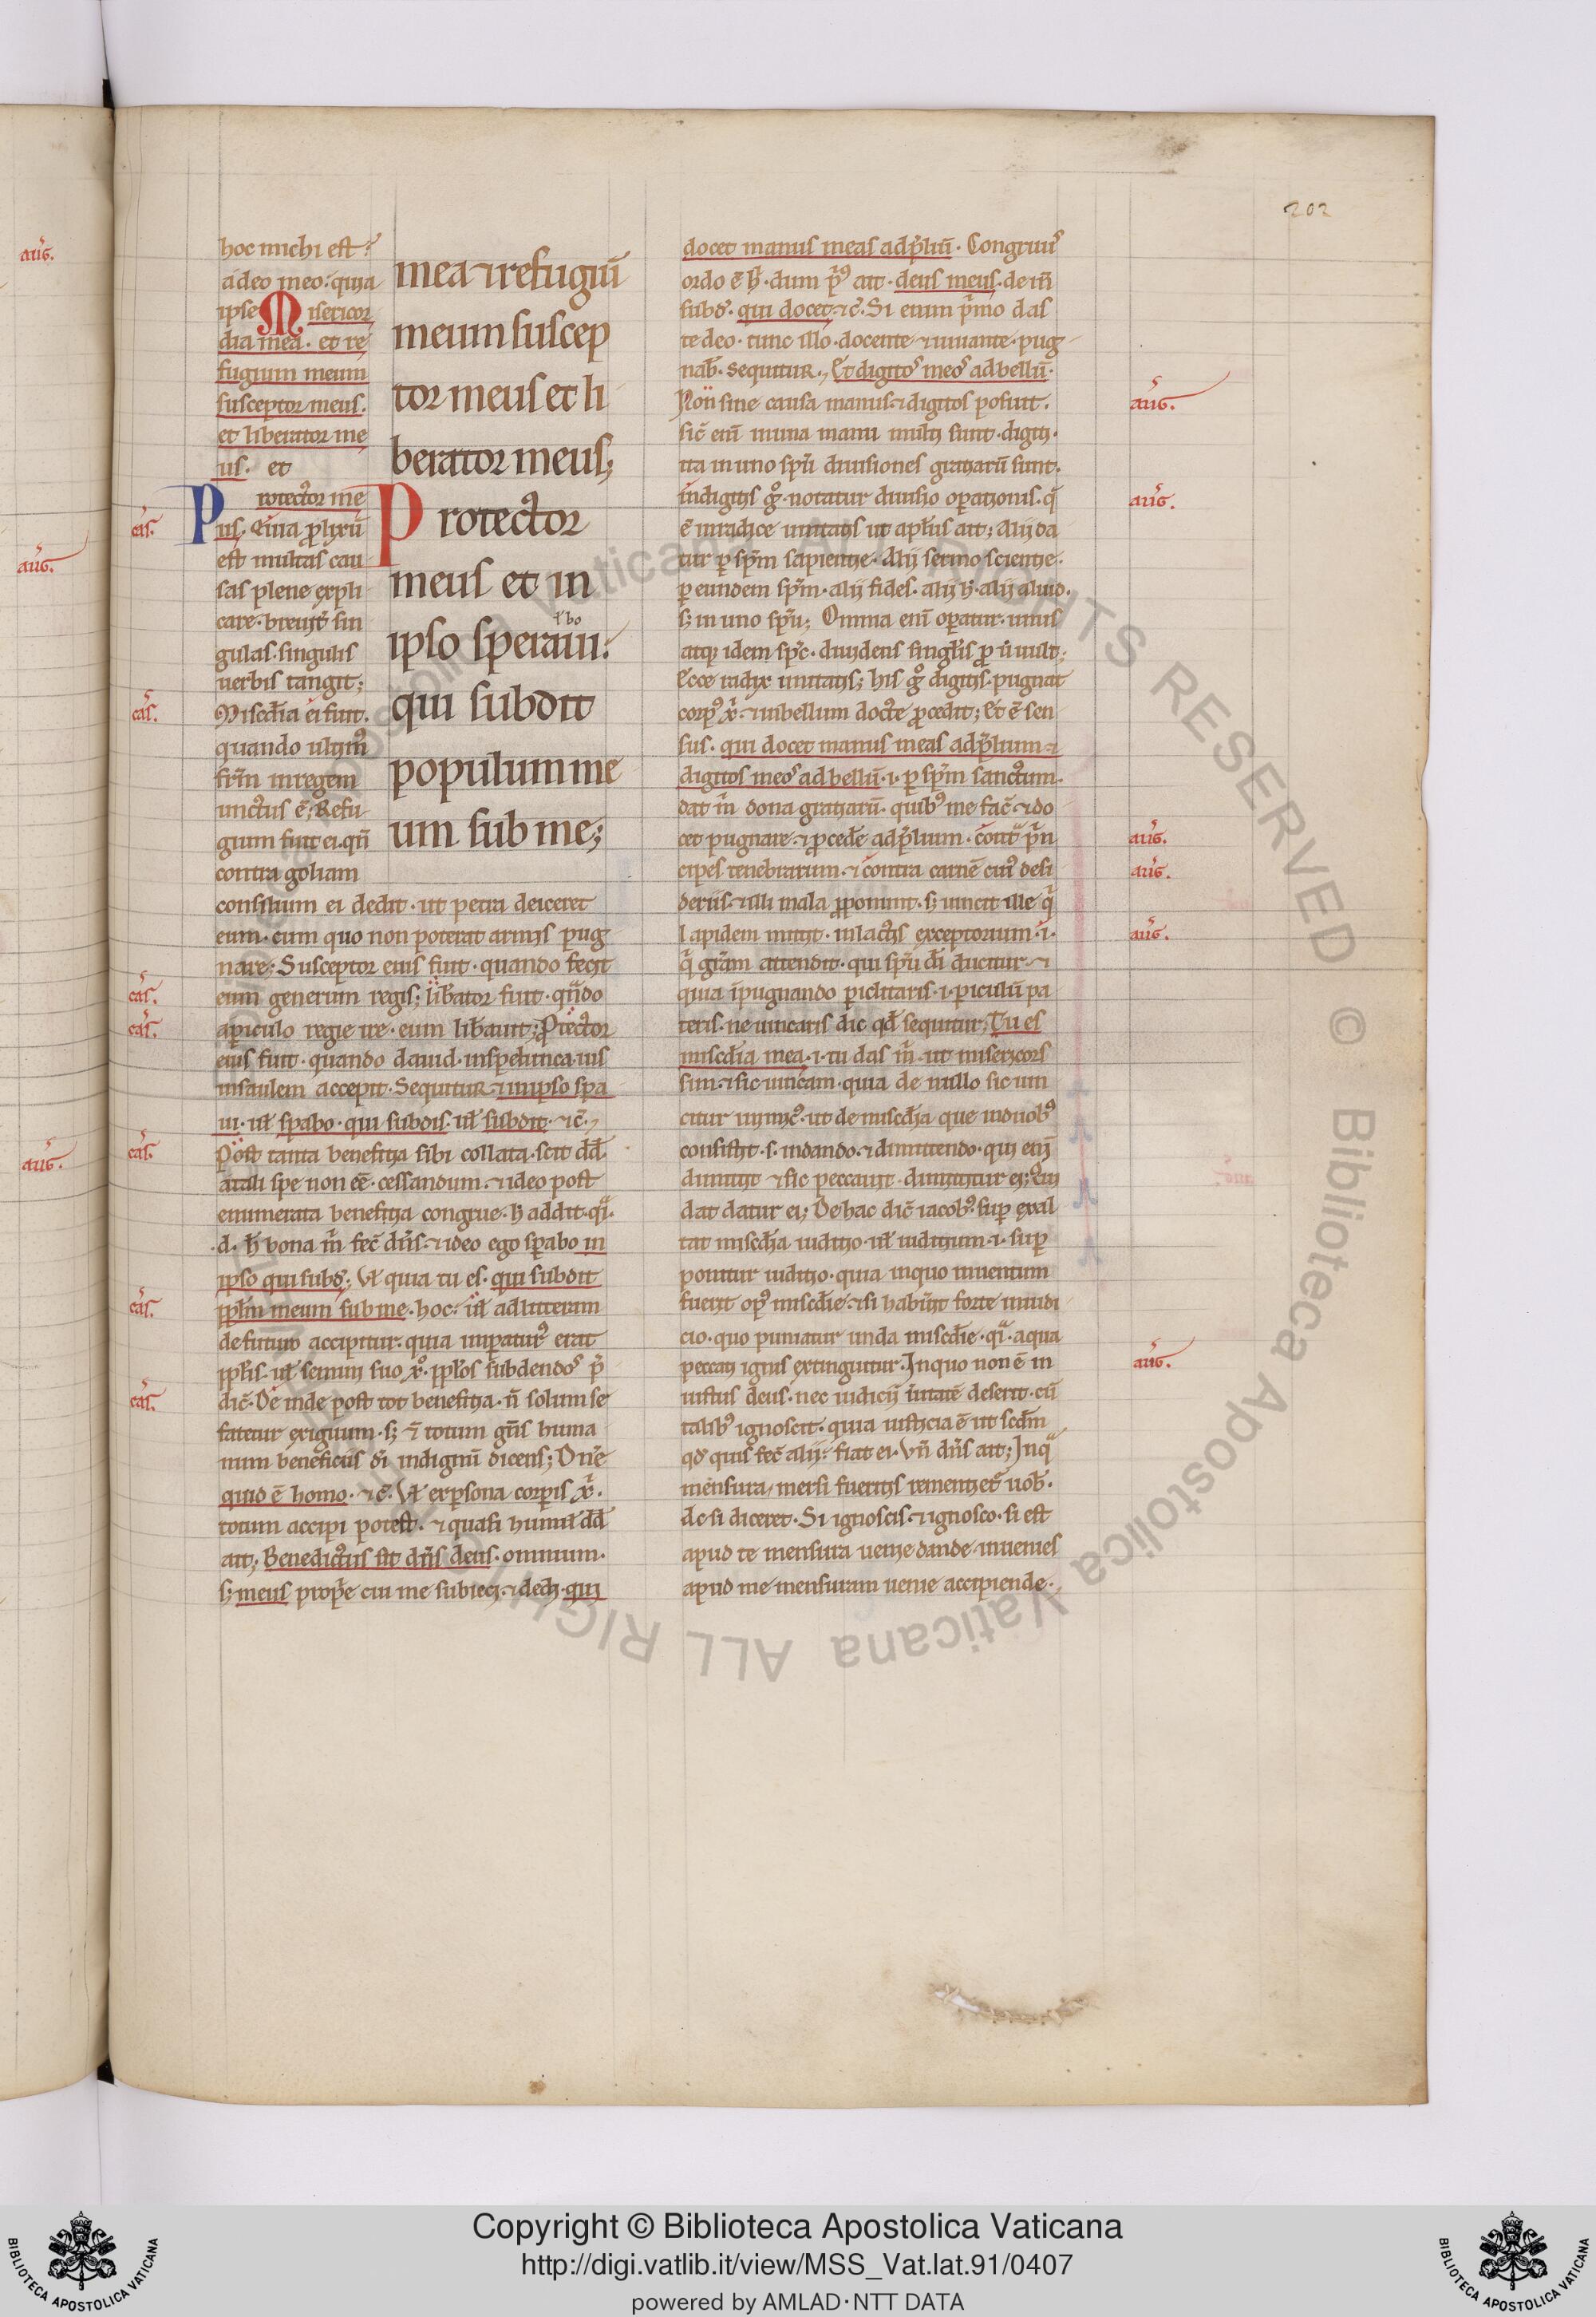 202
hoc michi est?
a deo meo. quia
ipse Misericor
dia mea. et re
fugium meum
susceptor meus.
et liberator me
us. et
Protector me
us. Quia ꝓlixū
est multas cau
sas plene expli
care. breuiť sin
gulas. singulis
uerbis tangit;
Misc̄dia ei fuit.
quando
fr̄m in regem
unctus ē; Refu
gium fuit ei. qn̄
contra goliam
mea ⁊ refugiū
meum suscep
tor meus et li
berator meus;
Protector
meus et in
ipso speraui:
l̵ bo
qui subdit
populum me
um sub me;
consilium ei dedit. ut petra deiceret
eum. cum quo non poterat armis pug
nare; Susceptor eius fuit. quando fecit
eum generum regis; lib̄ator fuit. qn̄do
a ꝑiculo regie ire. eum lib̄auit; Ꝓtector
eius fuit. quando dauid. in spelunca. ius
in saulem accepit. Sequitur. ⁊ in ipso sp̄a
ui. ul̵ sꝑabo. qui subdis. ul̵ subdit. ⁊c̄.
Post tanta beneficia sibi collata. scit dd̄
a tali spe non eē. cessandum. ⁊ ideo post
enumerata beneficia congrue. h̄ addit. qͣi.
.d. h̄ bona m̄ fec̄ dn̄s. ⁊ ideo ego sꝑabo in
ipso qui subd̄; Vl̵ quia tu es. qui subdit
pp̄lm meum sub me. hoc. ul̵ ad litteram
de futuro accipitur. quia imꝑaturꝰ erat
pp̄lis. ul̵ semini suo xp̄o. pp̄los subdendos p̄
dic̄. De inde post tot beneficia. n̄ solum se
fatetur exiguum. sꝫ ⁊ totum gn̄s huma
num beneficiis di indignū dicens; Dn̄e
quid ē homo. ⁊c̄. Vl̵ ex ꝑsona corꝑis xp̄i.
totum accipi potest. ⁊ quasi humil̵ dd̄
ait; Benedictus sit dn̄s deus. omnium.
sꝫ meus proprie cui me subieci. ⁊ dedi. qui
docet manus meas ad p̄liū. Congruus
ordo ē h̄. dum p̄ꝰ ait. deus meus. dein̄
subd̄. qui docet. ⁊c̄. Si enim p̄mo das
te deo. tunc illo. docente ⁊ iuuante. pug
nab̄. Sequitur., Et digitos meos ad bellū.
Non sine causa manus. ⁊ digitos posuit.
sic̄ eni in una manu multi sunt. digiti.
ita in uno sp̄u diuisiones gratiarū sunt.
in digitis gͦ. notatur diuisio oꝑationis. q̄
ē in radice unitatis ut apl̄us ait; Alii da
tur ꝑ sp̄m sapientie. Alii sermo scientie.
ꝑ eundem sp̄m. alii fides. alii h̄. alii aliud.
sꝫ in uno sp̄u; Omnia eni oꝑatur. unus
atqꝫ idem sp̄c. diuidens singl̄is ꝓ ut uult;
Ecce radix unitatis; his gͦ digitis. pugnat
corpꝰ xp̄i. ⁊ in bellum docte ꝓcedit; Et ē sen
sus. qui docet manus meas ad p̄lium ⁊
digitos meos ad bellū. i. ꝑ sp̄m sanctum.
dat m̄ dona gratiarū. quibꝰ me fac̄ ⁊ do
cet pugnare. ⁊ ꝓced̄e ad p̄lium. contͣ p̄n
cipes tenebrarum. ⁊ contra carnē cuiꝰ desi
deriis. ⁊ illi mala ꝓponunt. sꝫ uincit ille q̄
lapidem mittit. in lactis exceptorium. i.
q̄ gr̄am attendit. qui sp̄u di ducitur. ⁊
quia īpugnando ꝑiclitaris. i. ꝑiculū pa
teris. ne uincaris dic qd̄ sequitur; Tu es
misc̄dia mea. i. tu das m̄. ut misericors
sim. ⁊ sic uincam. quia de nullo sic uin
citur. ut de misc̄dia que in duobꝰ
consistit. s. in dando. ⁊ dimittendo. qui eni
dimittit ⁊ sic peccauit. dimittitur ei;
dat datur ei; De hac dic̄ iacobꝰ. suꝑ exal
tat misc̄dia iudicio. ul̵ iudicium. i. suꝑ
ponitur iudicio. quia in quo inuentum
fuerit opꝰ misc̄die. ⁊ si habuit forte in iudi
cio. quo puniatur unda misc̄die. qͣi. aqua
peccati ignis extinguitur. In quo non ē in
iustus deus. nec iudicii ueritatē deserit. cū
talibꝰ ignoscit. quia iusticia ē ut sc̄dm
qd̄ quis fec̄ alii: fiat ei. Vn̄ dn̄s ait; In qͣ
mensura, mensi fueritis remetietͬ uob̄.
dc̄ si diceret. Si ignoscis. ⁊ ignosco. si est
apud te mensura uenie dande. inuenies
apud me mensuram uenie accipiende.
aug.
aug.
aug.
cas.
cas.
cas.
cas.
cas.
cas.
cas.
aug.
aug.
aug.
aug.
aug.
aug.
Copyright © Biblioteca Apostolica Vaticana
http://digi.vatlib.it/view/MSS_Vat.lat.91/0407
powered by AMLAD·NTT DATA
BIBLIOTECA APOSTOLICA VATICANA
BIBLIOTECA APOSTOLICA VATICANA
© Biblioteca Apostolica Vaticana ALL RIGHTS RESERVED